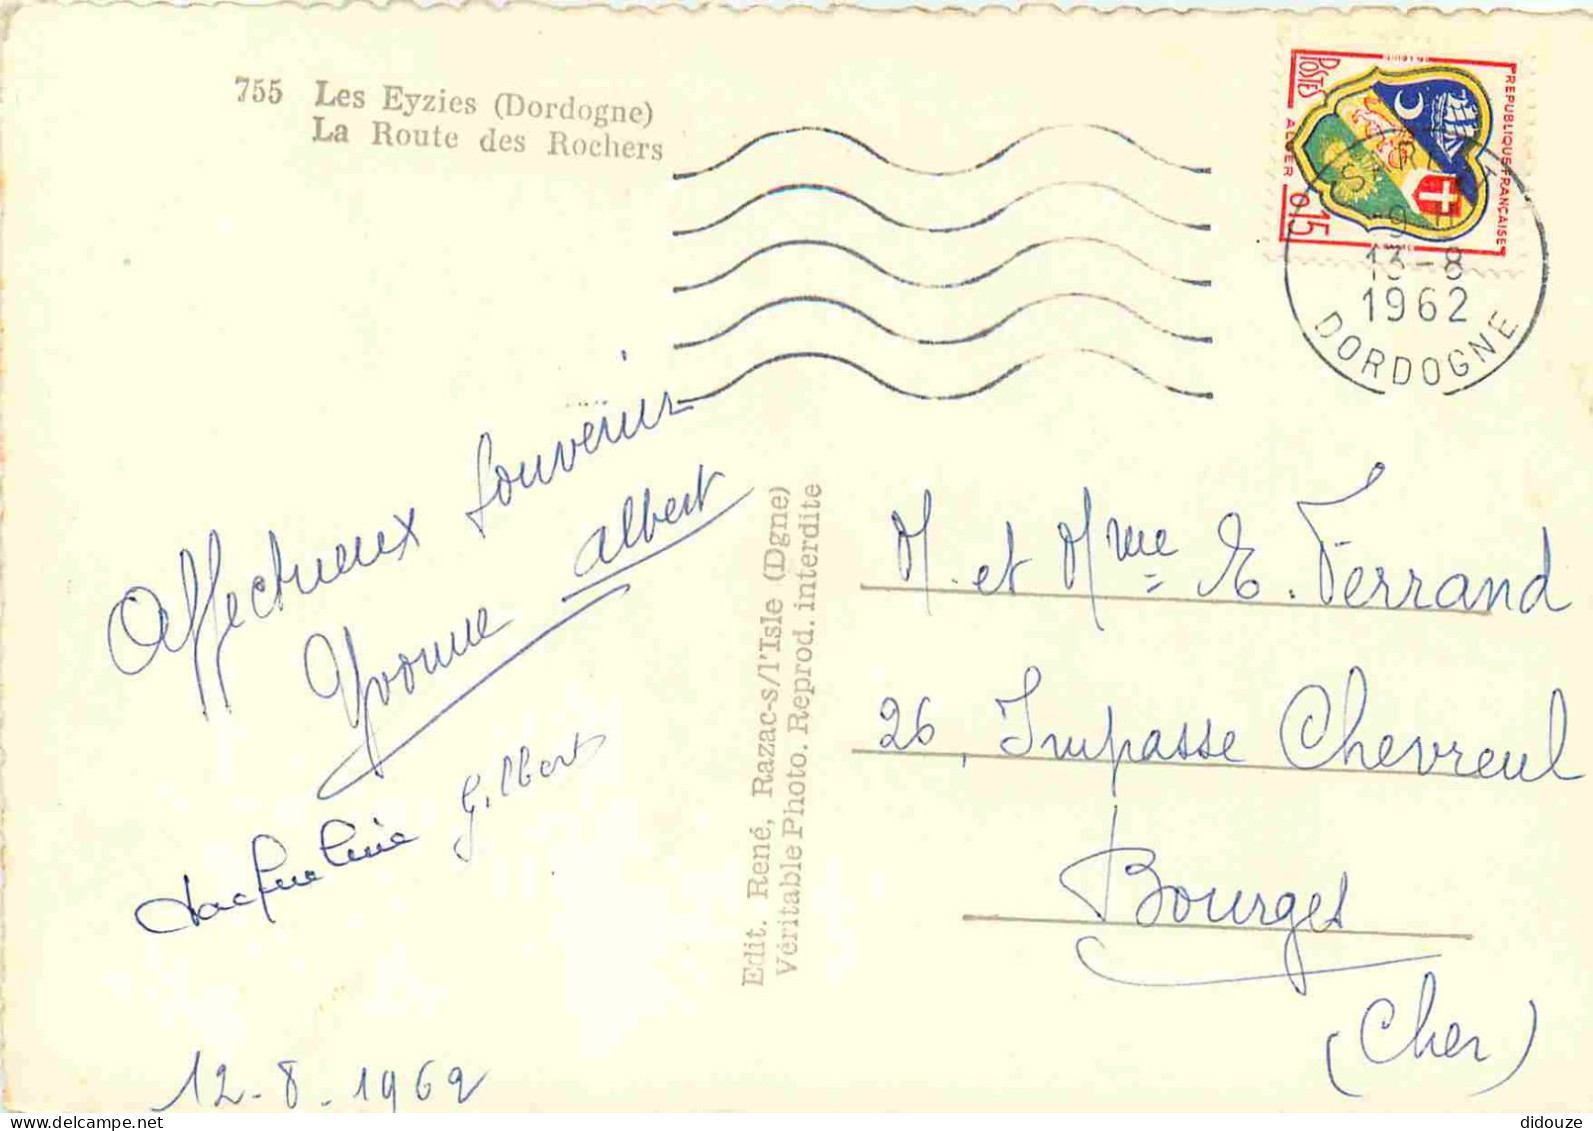 755 Les Eyzies (Dordogne)
La Route des Rochers
POSTES
REPUBLIQUE FRANÇAISE
ALGER
0,15
13-8
1962
DORDOGNE
Affectueux souvenir
Yvonne Albert
Jacqueline Gilbert
12-8-1962
Edit. René, Razac-s/l'Isle (Dgne)
Véritable Photo. Reprod. interdite
M. et Mme E. Ferrand
26, Impasse Chevreul
Bourges
(Cher)
delcampe.net
didouze